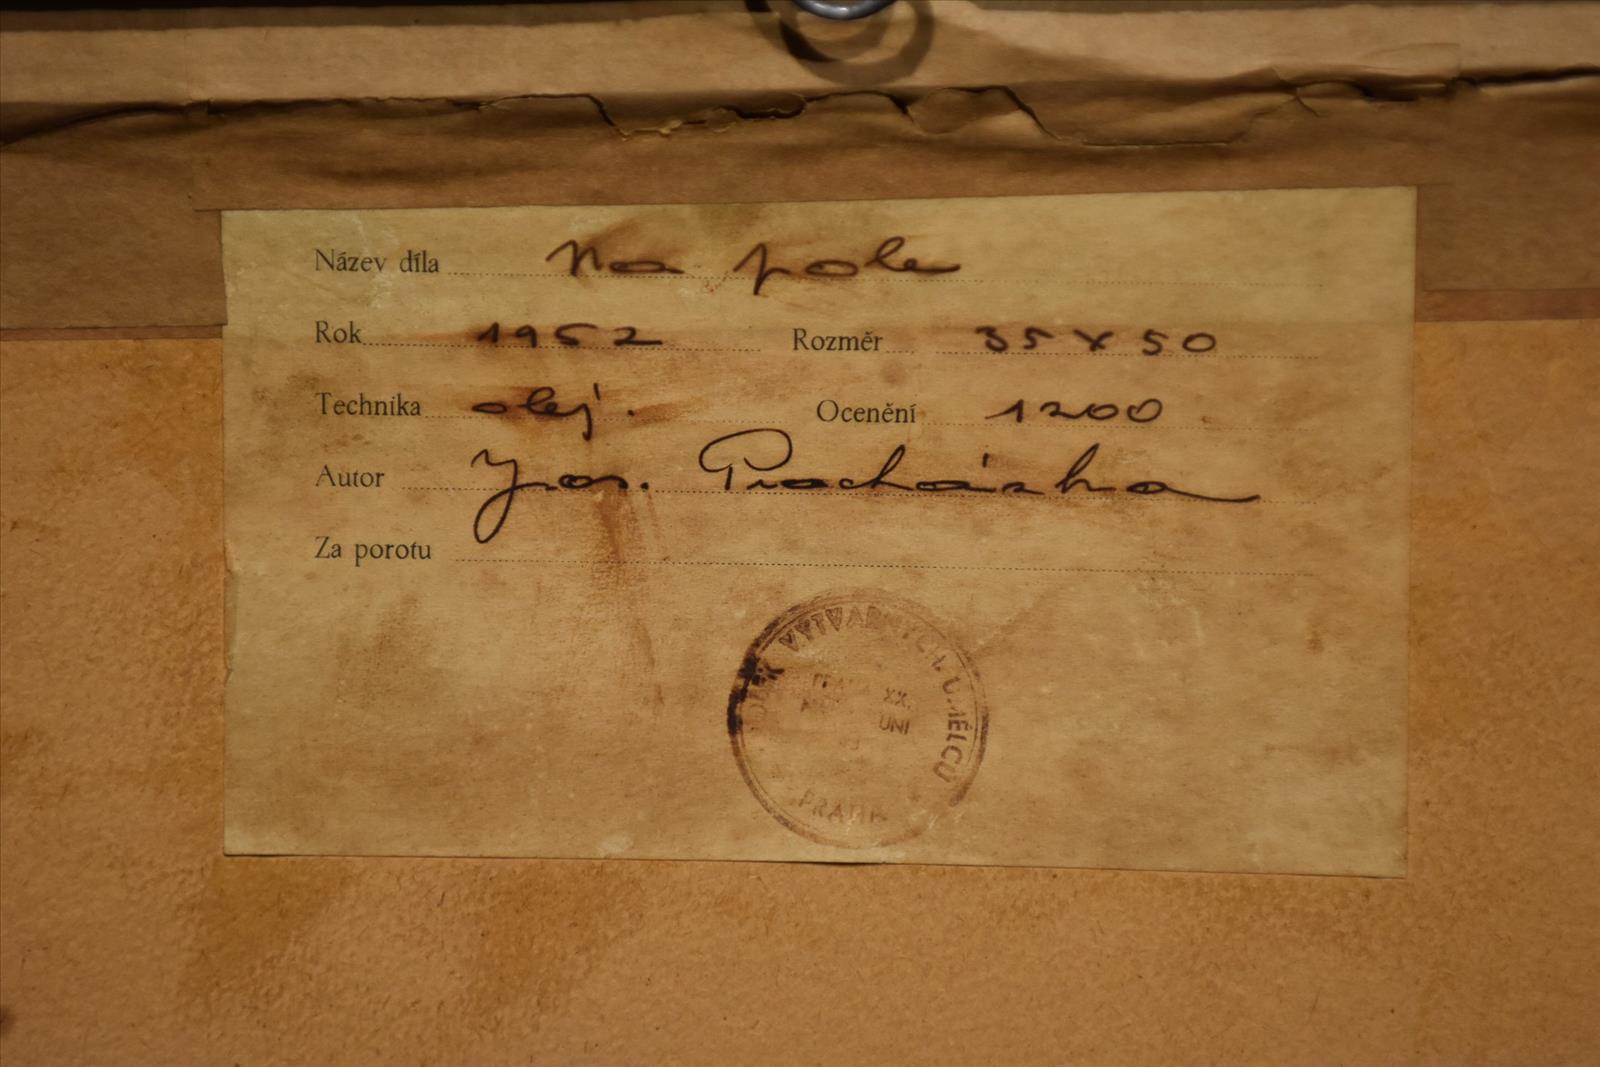 Název díla Na pole
Rok 1952 Rozměr 35 x 50
Technika olej. Ocenění 1200
Autor Jos. Procházka
Za porotu
VÝTVARNÝCH UMĚLCŮ
XX.
UNI
PRAHA